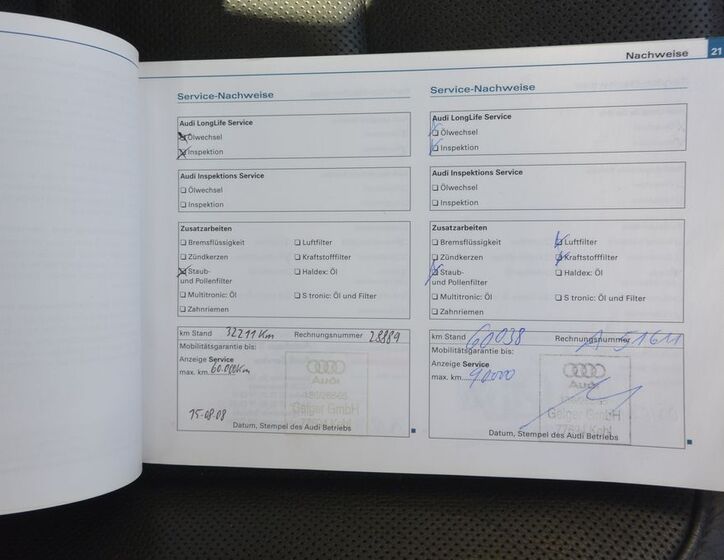 Nachweise 21
Service-Nachweise
Audi LongLife Service
Ölwechsel
Inspektion
Audi Inspektions Service
Ölwechsel
Inspektion
Zusatzarbeiten
Bremsflüssigkeit
Luftfilter
Zündkerzen
Kraftstofffilter
Staub-
und Pollenfilter
Haldex: Öl
Multitronic: Öl
S tronic: Öl und Filter
Zahnriemen
km Stand 32211 Km Rechnungsnummer 28889
Mobilitätsgarantie bis:
Anzeige Service
max. km 60.000Km
Audi
Geiger GmbH
15-08-08
Datum, Stempel des Audi Betriebs
Service-Nachweise
Audi LongLife Service
Ölwechsel
Inspektion
Audi Inspektions Service
Ölwechsel
Inspektion
Zusatzarbeiten
Bremsflüssigkeit
Luftfilter
Zündkerzen
Kraftstofffilter
Staub-
und Pollenfilter
Haldex: Öl
Multitronic: Öl
S tronic: Öl und Filter
Zahnriemen
km Stand 60038 Rechnungsnummer A 51611
Mobilitätsgarantie bis:
Anzeige Service
max. km 90000
Audi
Geiger GmbH
77694 Kehl
Datum, Stempel des Audi Betriebs